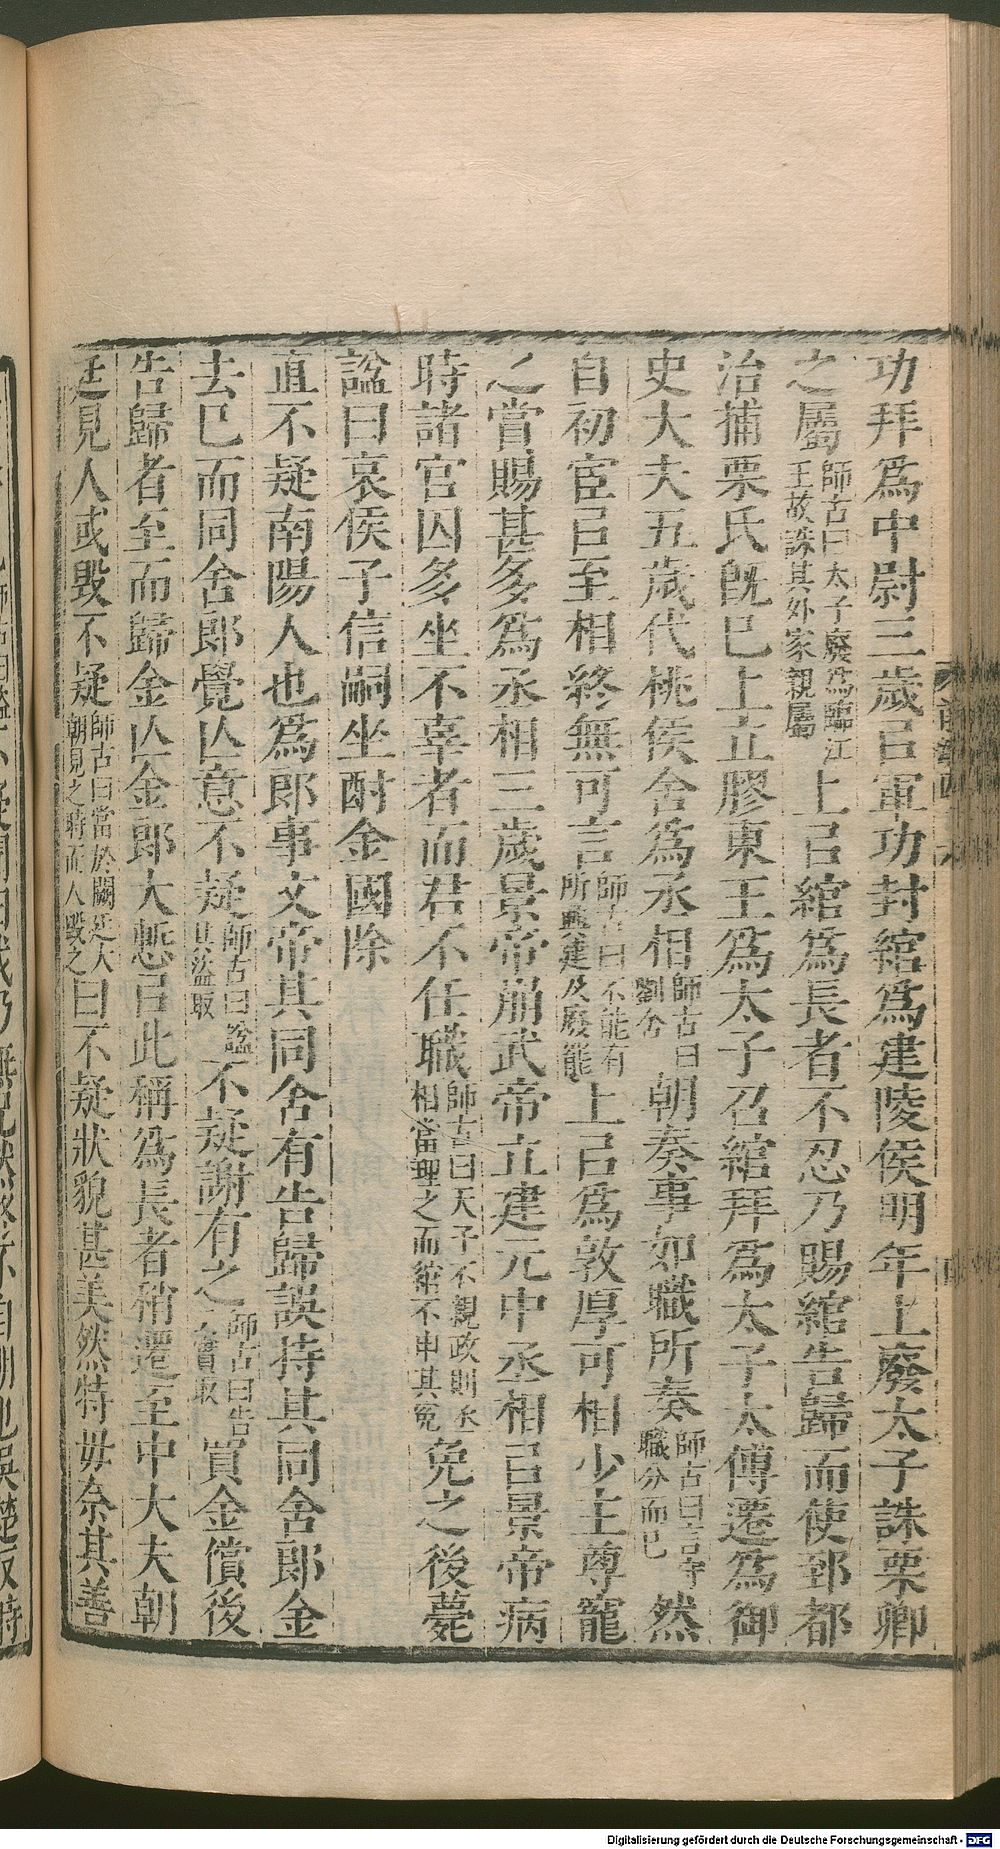 功拜爲中尉三歲㠯軍功封綰爲建陵侯明年上廢太子誅栗卿
之屬師古曰太子廢爲臨江王故誅其外家親屬上㠯綰爲長者不忍乃賜綰告歸而使郅都
治捕栗氏旣已上立膠東王爲太子召綰拜爲太子太傅遷爲御
史大夫五歲代桃侯舍爲丞相師古曰劉舍朝奏事如職所奏師古曰言守職分而已然
自初宦㠯至相終無可言師古曰不能有所興建及廢罷上㠯爲敦厚可相少主尊寵
之賞賜甚多爲丞相三歲景帝崩武帝立建元中丞相㠯景帝病
時諸官囚多坐不辜者而君不任職師古曰天子不親政則丞相當理之而綰不申其冤免之後薨
諡曰哀侯子信嗣坐酎金國除
直不疑南陽人也爲郎事文帝其同舍有告歸誤持其同舍郎金
去已而同舍郎覺亡意不疑師古曰疑其盜取不疑謝有之師古曰告云實取買金償後
告歸者至而歸金亡金郎大慙㠯此稱爲長者稍遷至中大夫朝
廷見人或毀不疑師古曰當於闕廷大朝見之時而人毀之曰不疑狀貌甚美然特毋奈其善
Digitalisierung gefördert durch die Deutsche Forschungsgemeinschaft - DFG